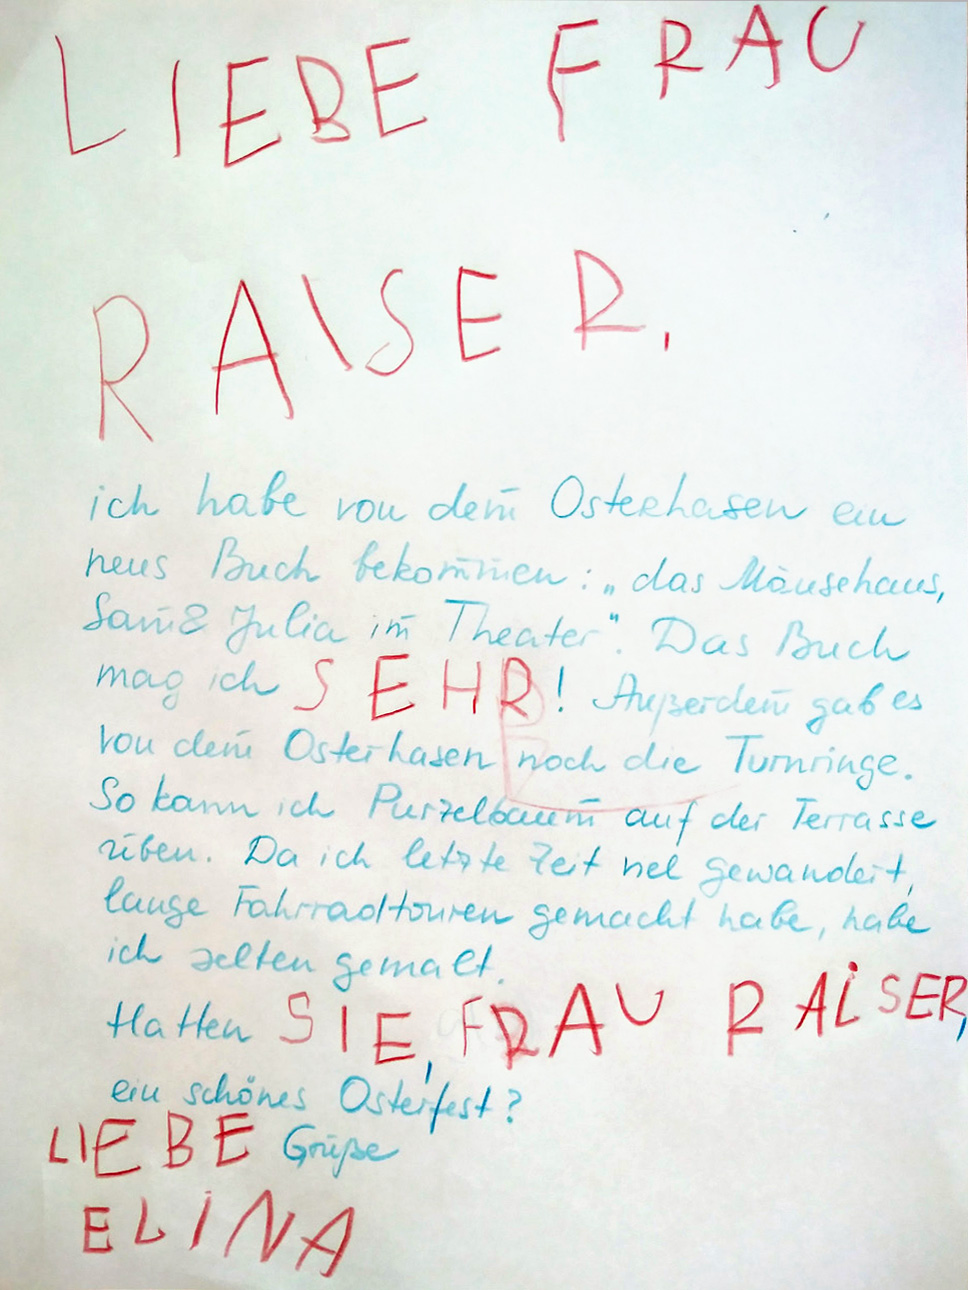 LIEBE FRAU
RAISER,
ich habe von dem Osterhasen ein
neus Buch bekommen: „das Mäusehaus,
Sam & Julia im Theater". Das Buch
mag ich SEHR! Außerdem gab es
von dem Osterhasen noch die Turnringe.
So kann ich Purzelbaum auf der Terrasse
üben. Da ich letzte Zeit viel gewandert,
lange Fahrradtouren gemacht habe, habe
ich selten gemalt.
Hatten SIE, FRAU RAiSER,
ein schönes Osterfest?
LIEBE Grüße
ELiNA